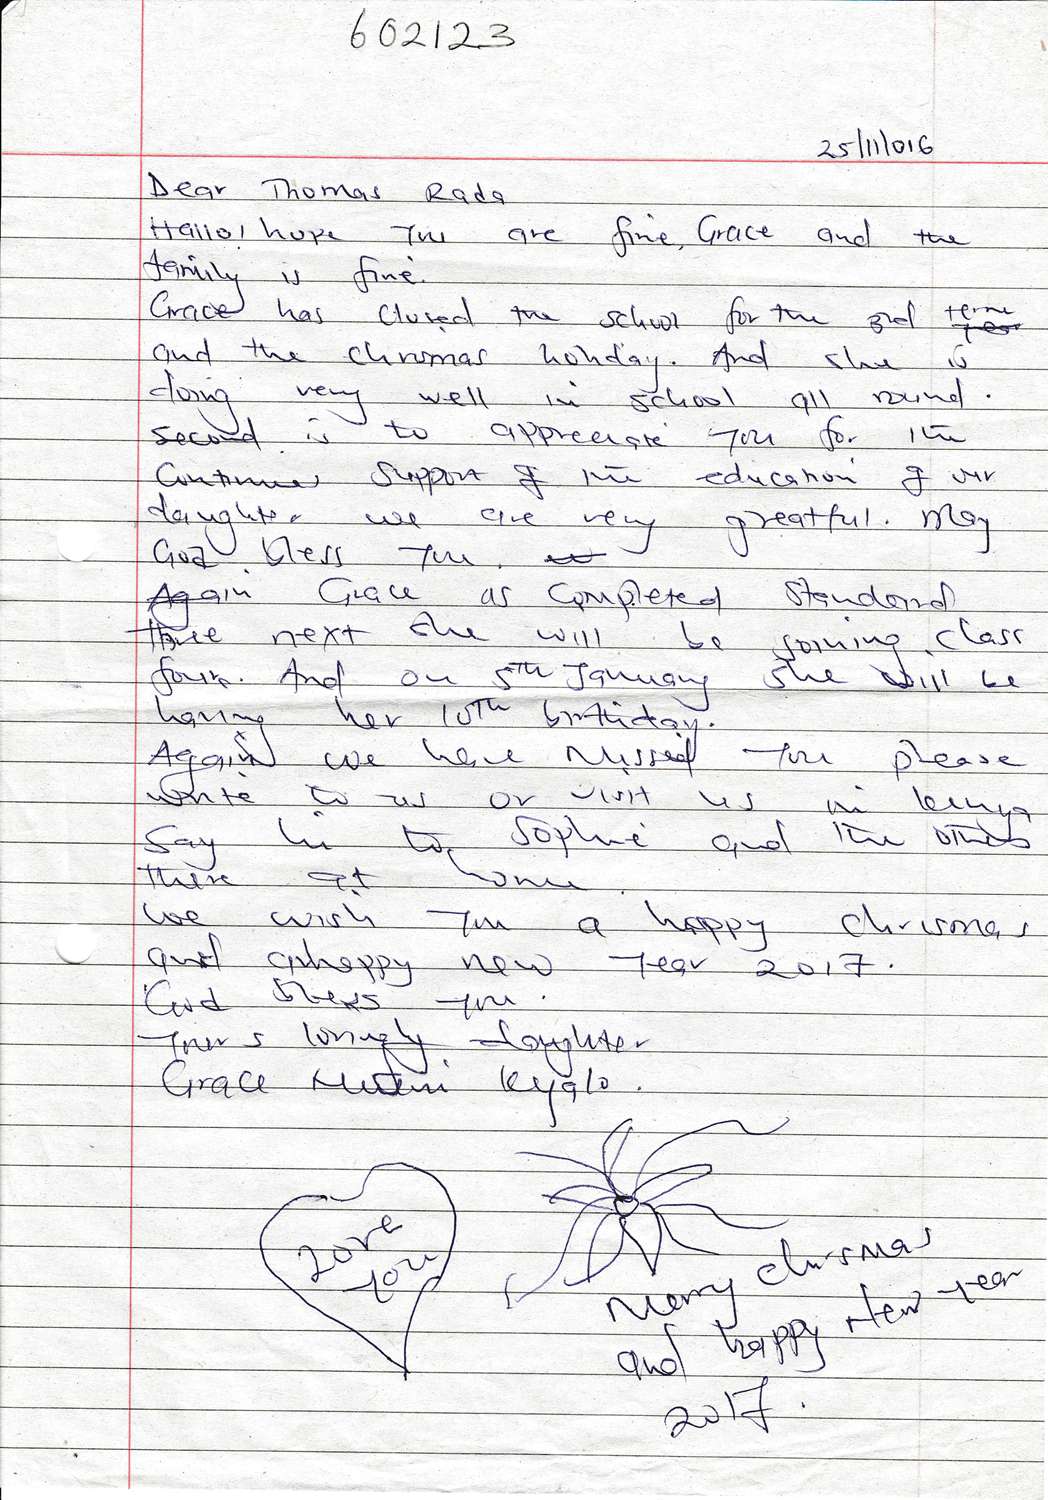 602123
25/11/016
Dear Thomas Rada
Hallo! hope you are fine, Grace and the
family is fine.
Grace has closed the school for the 3rd term
and the chrismas holiday. And she is
doing very well in school all round.
second is to appreciate you for the
Continues support of the education of our
daughter we are very greatful. May
God bless you.
Again Grace as completed standard
three next she will be joining class
four. And on 5th January she will be
having her 10th birthday.
Again we have missed you please
write to us or visit us in kenya
Say hi to Sophie and the others
there at home.
we wish you a happy chrismas
and ahappy new year 2017.
God bless you.
Yours lovingly daughter
Grace Muteni Kyalo.
Love
you
Merry chrismas
and happy New year
2017.